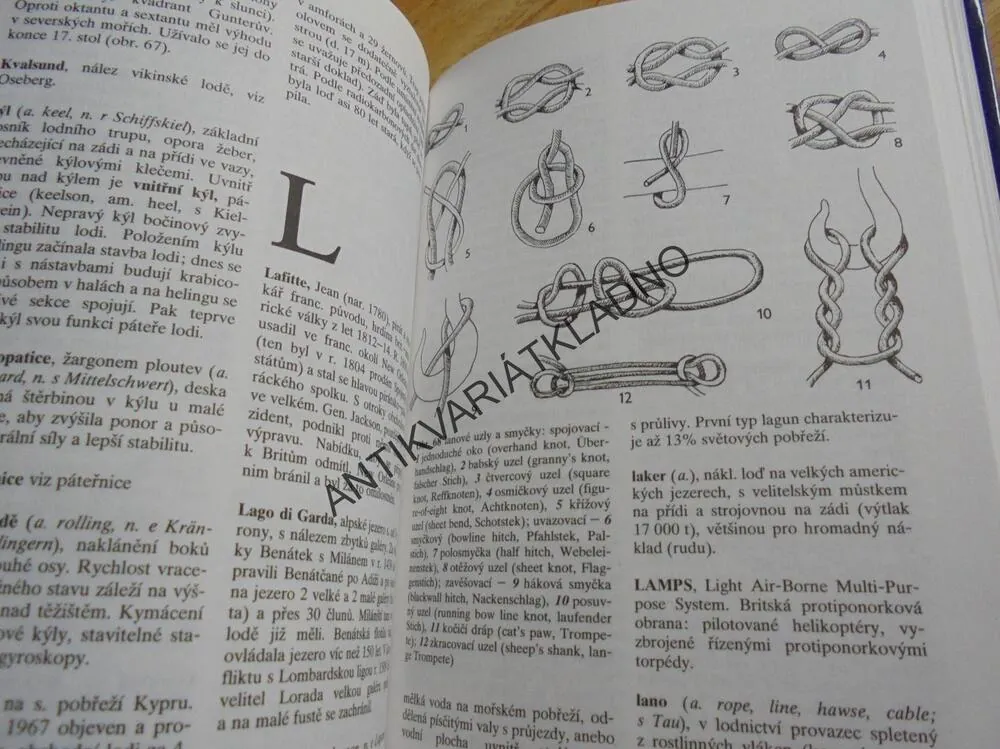 kvadrant Gunterův.
Oproti oktantu a sextantu měl výhodu
v severských mořích. Užívalo se jej do
konce 17. stol (obr. 67).
Kvalsund, nález vikinské lodě, viz
Oseberg.
(a. keel, n. r Schiffskiel), základní
lodního trupu, opora žeber,
na zádi a na přídi ve vazy,
kýlovými klečemi. Uvnitř
nad kýlem je vnitřní kýl, pá-
(keelson, am. heel, s Kiel-
Nepravý kýl bočinový zvy-
stabilitu lodi. Položením kýlu
začínala stavba lodi; dnes se
i s nástavbami budují krabico-
v halách a na helingu se
sekce spojují. Pak teprve
kýl svou funkci páteře lodi.
žargonem ploutev (a.
n. s Mittelschwert), deska
štěrbinou v kýlu u malé
aby zvýšila ponor a půso-
síly a lepší stabilitu.
viz páteřnice
(a. rolling, n. e Krän-
naklánění boků
osy. Rychlost vrace-
stavu záleží na výš-
nad těžištěm. Kymácení
kýly, stavitelné sta-
gyroskopy.
na s. pobřeží Kypru.
1967 objeven a pro-
v amforách a 29 žernovů.
olovem se dodatečně
strou (d. 17 m). Podle
se uvažuje předpozadní
starší doklad). Záď byla
trá. Podle radiokarbonových
byla loď asi 80 let stará, když
pila.
L
Lafitte, Jean (nar. 1780),
kář franc. původu, hrdina
rické války z let 1812–14.
usadil ve franc. okolí New
(ten byl v r. 1804 prodán
státům) a stal se hlavou
ráckého spolku. S otroky
ve velkém. Gen. Jackson,
zident, podnikl proti
výpravu. Nabídku,
k Britům odmítl,
nim bránil a byl
Lago di Garda, alpské jezero
rony, s nálezem zbytků galéry.
ky Benátek s Milánem v r.
pravili Benátčané po Adiži a
na jezero 2 velké a 2 malé
ta) a přes 30 člunů.
lodě již měli. Benátská
ovládala jezero víc než 150 let.
fliktu s Lombardskou ligou r.
velitel Lorada velkou galéru
a na malé fustě se zachránil.
1
2
3
4
5
6
7
8
9
10
11
12
68 lanové uzly a smyčky: spojovací -
1 jednoduché oko (overhand knot, Über-
handschlag), 2 babský uzel (granny's knot,
falscher Stich), 3 čtvercový uzel (square
knot, Reffknoten), 4 osmičkový uzel (figu-
re-of-eight knot, Achtknoten), 5 křížový
uzel (sheet bend, Schotstek); uvazovací – 6
smyčkový (bowline hitch, Pfahlstek, Pal-
stich), 7 polosmyčka (half hitch, Webelei-
nenstek), 8 otěžový uzel (sheet knot, Flag-
genstich); zavěšovací – 9 háková smyčka
(blackwall hitch, Nackenschlag), 10 posuv-
ný uzel (running bow line knot, laufender
Stich), 11 kočičí dráp (cat's paw, Trompe-
te); 12 zkracovací uzel (sheep's shank, lan-
ge Trompete)
mělká voda na mořském pobřeží, od-
dělená písčitými valy s průjezdy, anebo
vodní plocha uvnitř
s průlivy. První typ lagun charakterizu-
je až 13% světových pobřeží.
laker (a.), nákl. loď na velkých americ-
kých jezerech, s velitelským můstkem
na přídi a strojovnou na zádi (výtlak
17 000 t), většinou pro hromadný ná-
klad (rudu).
LAMPS, Light Air-Borne Multi-Pur-
pose System. Britská protiponorková
obrana: pilotované helikoptéry, vy-
zbrojené řízenými protiponorkovými
torpédy.
lano (a. rope, line, hawse, cable;
s Tau), v lodnictví provazec spletený
z rostlinných vláken
ANTIKVARIÁTKLADNO